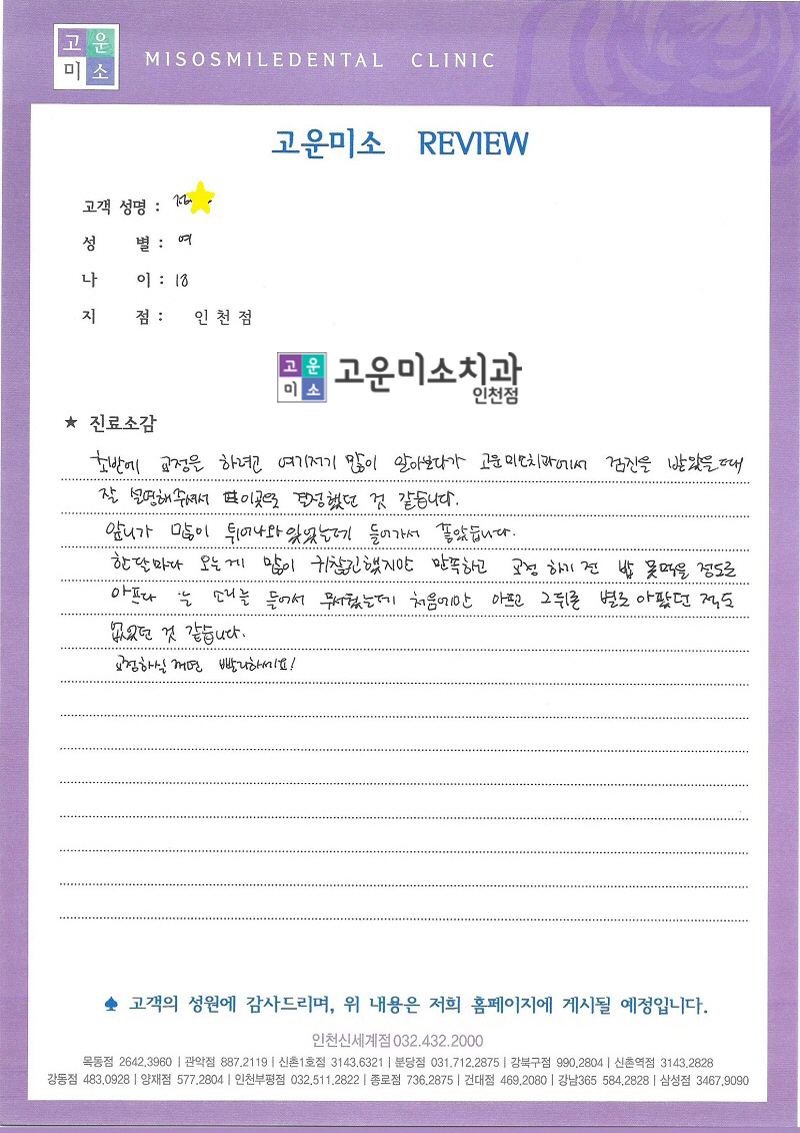 고운
미소
MISOSMILEDENTAL CLINIC
고운미소 REVIEW
고객 성명 :
성 별 : 여
나 이 : 18
지 점 : 인천점
고운
미소
고운미소치과
인천점
★ 진료소감
초반에 교정을 하려고 여기저기 많이 알아보다가 고운미소치과에서 검진을 받았을때
잘 설명해주셔서 이곳으로 결정했던 것 같습니다.
앞니가 많이 튀어나와있었는데 들어가서 좋았습니다.
한달마다 오는게 많이 귀찮긴했지만 만족하고 교정 하기 전 밥 못먹을 정도로
아프다 는 소리를 들어서 무서웠는데 처음에만 아프고 그뒤론 별로 아팠던 적도
없었던 것 같습니다.
교정하실꺼면 빨리하세요!
♠ 고객의 성원에 감사드리며, 위 내용은 저희 홈페이지에 게시될 예정입니다.
인천신세계점 032.432.2000
목동점 2642,3960 | 관악점 887.2119 | 신촌1호점 3143.6321 | 분당점 031.712.2875 | 강북구점 990.2804 | 신촌역점 3143.2828
강동점 483.0928 | 양재점 577.2804 | 인천부평점 032.511.2822 | 종로점 736.2875 | 건대점 469.2080 | 강남365 584.2828 | 삼성점 3467.9090